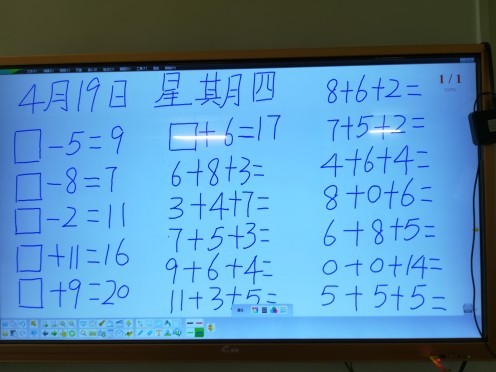 4月19日 星期四
□-5=9
□-8=7
□-2=11
□+11=16
□+9=20
□+6=17
6+8+3=
3+4+7=
7+5+3=
9+6+4=
11+3+5=
8+6+2=
7+5+2=
4+6+4=
8+0+6=
6+8+5=
0+0+14=
5+5+5=
1/1